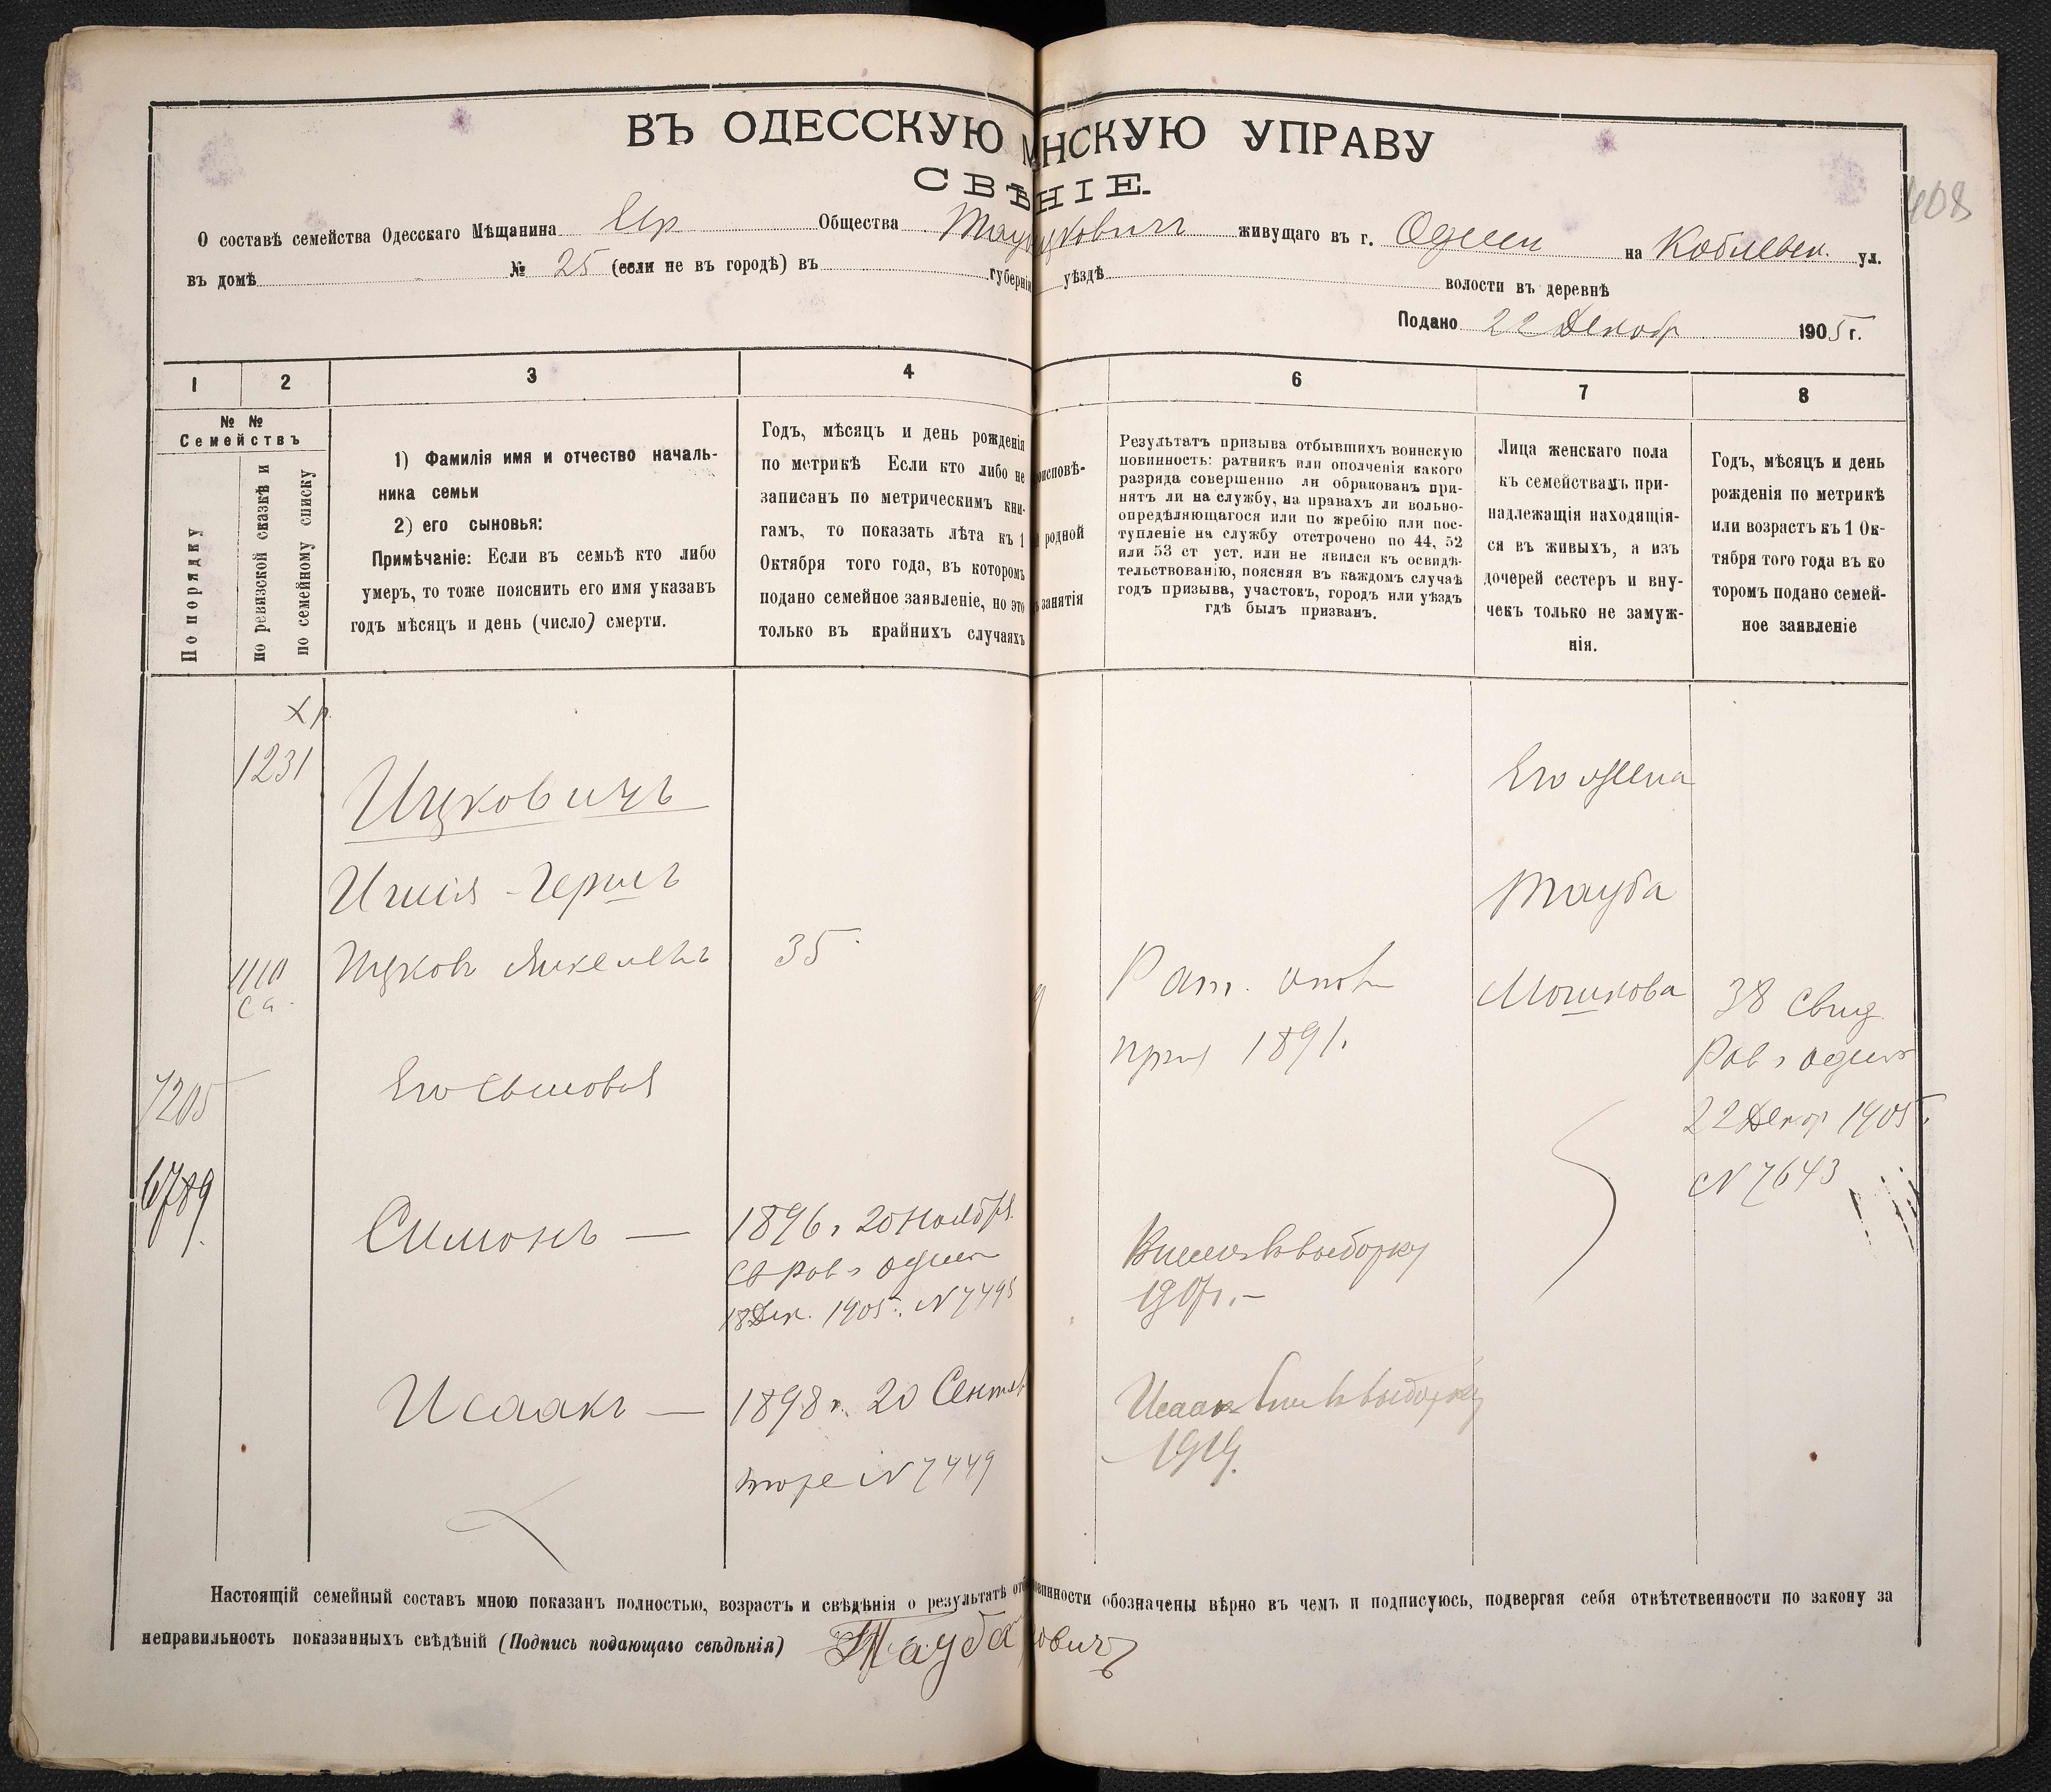 ВЪ ОДЕССКУЮ НСКУЮ УПРАВУ
СВѢНІЕ.
408
О составѣ семейства Одесскаго Мѣщанина Евр Общества Тауцковичъ живущаго въ г. Одессѣ на Кобилевск. ул.
въ домѣ № 25 (если не въ городѣ) въ губерніи уѣздѣ волости въ деревнѣ
Подано 22 Декабр 1905 г.
1 2 3 4 6 7 8
№ №
Семействъ
По порядку
по ревизской сказкѣ и
по семейному списку
1) Фамилія имя и отчество началь-
ника семьи
2) его сыновья:
Примѣчаніе: Если въ семьѣ кто либо
умеръ, то тоже пояснить его имя указавъ
годъ мѣсяцъ и день (число) смерти.
Годъ, мѣсяцъ и день рожденія
по метрикѣ Если кто либо не
записанъ по метрическимъ кни-
гамъ, то показать лѣта къ 1
Октября того года, въ которомъ
подано семейное заявленіе, но это
только въ крайнихъ случаяхъ
оисповѣ-
родной
занятія
Результатъ призыва отбывшихъ воинскую
повинность: ратникъ или ополченія какого
разряда совершенно ли обракованъ при-
нятъ ли на службу, на правахъ ли вольно-
опредѣляющагося или по жребію или пос-
тупленіе на службу отстрочено по 44, 52
или 53 ст уст. или не явился къ освидѣ-
тельствованію, поясняя въ каждомъ случаѣ
годъ призыва, участокъ, городъ или уѣздъ
гдѣ былъ призванъ.
Лица женскаго пола
къ семействамъ при-
надлежащія находящія-
ся въ живыхъ, а изъ
дочерей сестеръ и вну-
чекъ только не замуж-
нія.
Годъ, мѣсяцъ и день
рожденія по метрикѣ
или возрастъ къ 1 Ок-
тября того года въ ко
торомъ подано семей-
ное заявленіе
1231
Ицковичъ
Его жена
Ишія-Гершъ
Тауба
1110
Ицковъ Янкелевъ 35
Рат. опол
Мошкова
38 Свид.
приз 1891.
Рав. Одесс
7205
Его сыновья
22 Декар 1905 г.
№ 7643
6789
Симонъ — 1896 г. 20 Ноября
Св Рав. Одесс
18 Дек. 1905 г. № 7495
Внесенъ в выборку
1917 г. –
Исаакъ — 1898 г. 20 Сентяб
тоже № 7449
Исаакъ внес в выборку
1919.
Настоящій семейный составъ мною показанъ полностью, возрастъ и свѣдѣнія о результатѣ отб винности обозначены вѣрно въ чемъ и подписуюсь, подвергая себя отвѣтственности по закону за
неправильность показанныхъ свѣдѣній (Подпись подающаго свѣдѣнія) Тауба овичъ